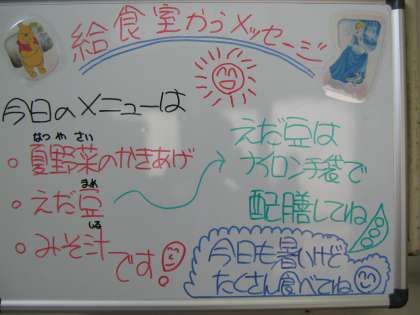 給食室からメッセージ
今日のメニューは
なつ や さい
・夏野菜のかきあげ
まめ
・えだ豆
しる
・みそ汁です!
えだ豆は
ナイロン手袋で
配膳してね
今日も暑いけど
たくさん食べてね